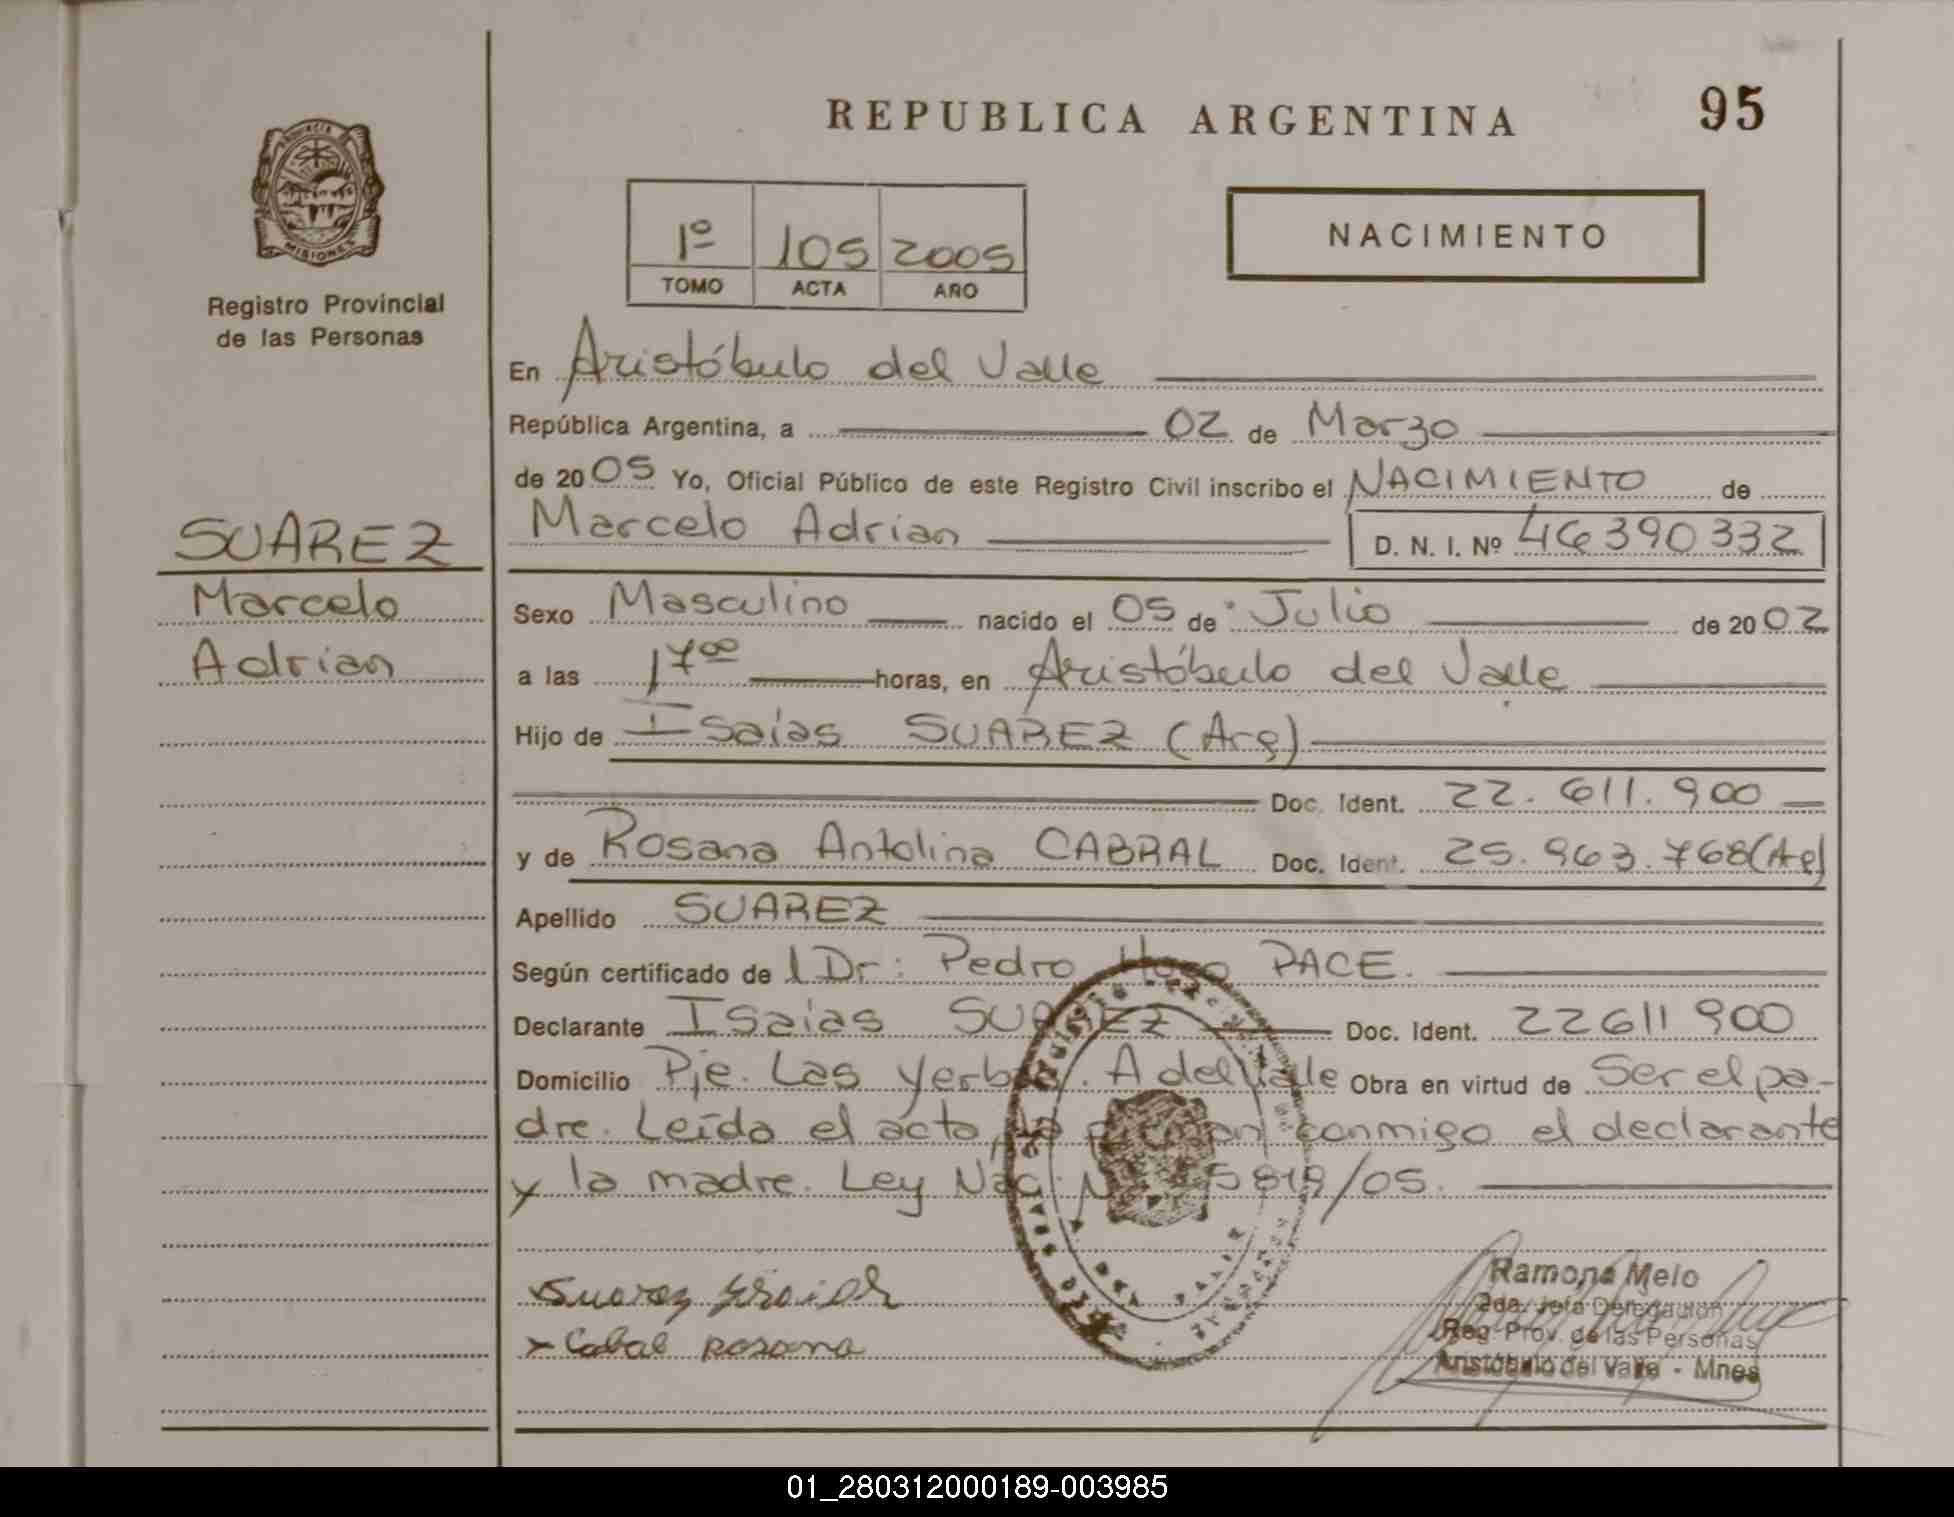 REPUBLICA ARGENTINA
95
PROVINCIA
MISIONES
Registro Provincial
de las Personas
1º 105 2005
TOMO ACTA AÑO
NACIMIENTO
En Aristóbulo del Valle
República Argentina, a 02 de Marzo
de 2005 Yo, Oficial Público de este Registro Civil inscribo el NACIMIENTO de
Marcelo Adrian D. N. I. Nº 46390332
SUAREZ
Marcelo
Adrian
Sexo Masculino nacido el 05 de Julio de 2002
a las 17⁰⁰ horas, en Aristóbulo del Valle
Hijo de Isaías SUAREZ (Arg)
Doc. Ident. 22.611.900
y de Rosana Antolina CABRAL Doc. Ident. 25.963.768 (Arg)
Apellido SUAREZ
Según certificado del Dr: Pedro Hugo PACE.
Declarante Isaias SUAREZ Doc. Ident. 22611900
Domicilio Pje. Las Yerbas. A del Valle Obra en virtud de Ser el pa-
dre. Leída el acta, la firman conmigo el declarante
y la madre. Ley Nac. Nº 25819/05.
Suarez
x Cabal rosana
Ramona Melo
2da. Jefa Delegación
Reg. Prov. de las Personas
Aristóbulo del Valle - Mnes
01_280312000189-003985